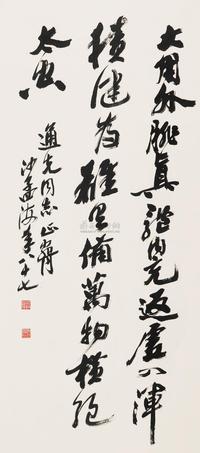 大用外腓真體内充返虚入渾
積健為雄具備萬物横絶
太空
通先同志正腕
沙孟海年八十七